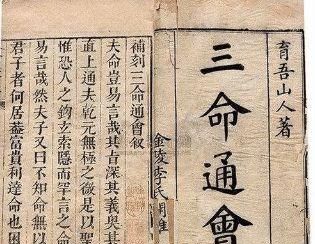 育吾山人著
三命通會
金陵李氏
補刻三命通會敘
夫命豈易言哉其旨深其義奧其
直上通夫乾元無極之微是以聖
惟恐人之鉤玄索隱而罕言之命
易言哉然夫子又曰不知命無以
君子者何居蓋富貴利達命也困